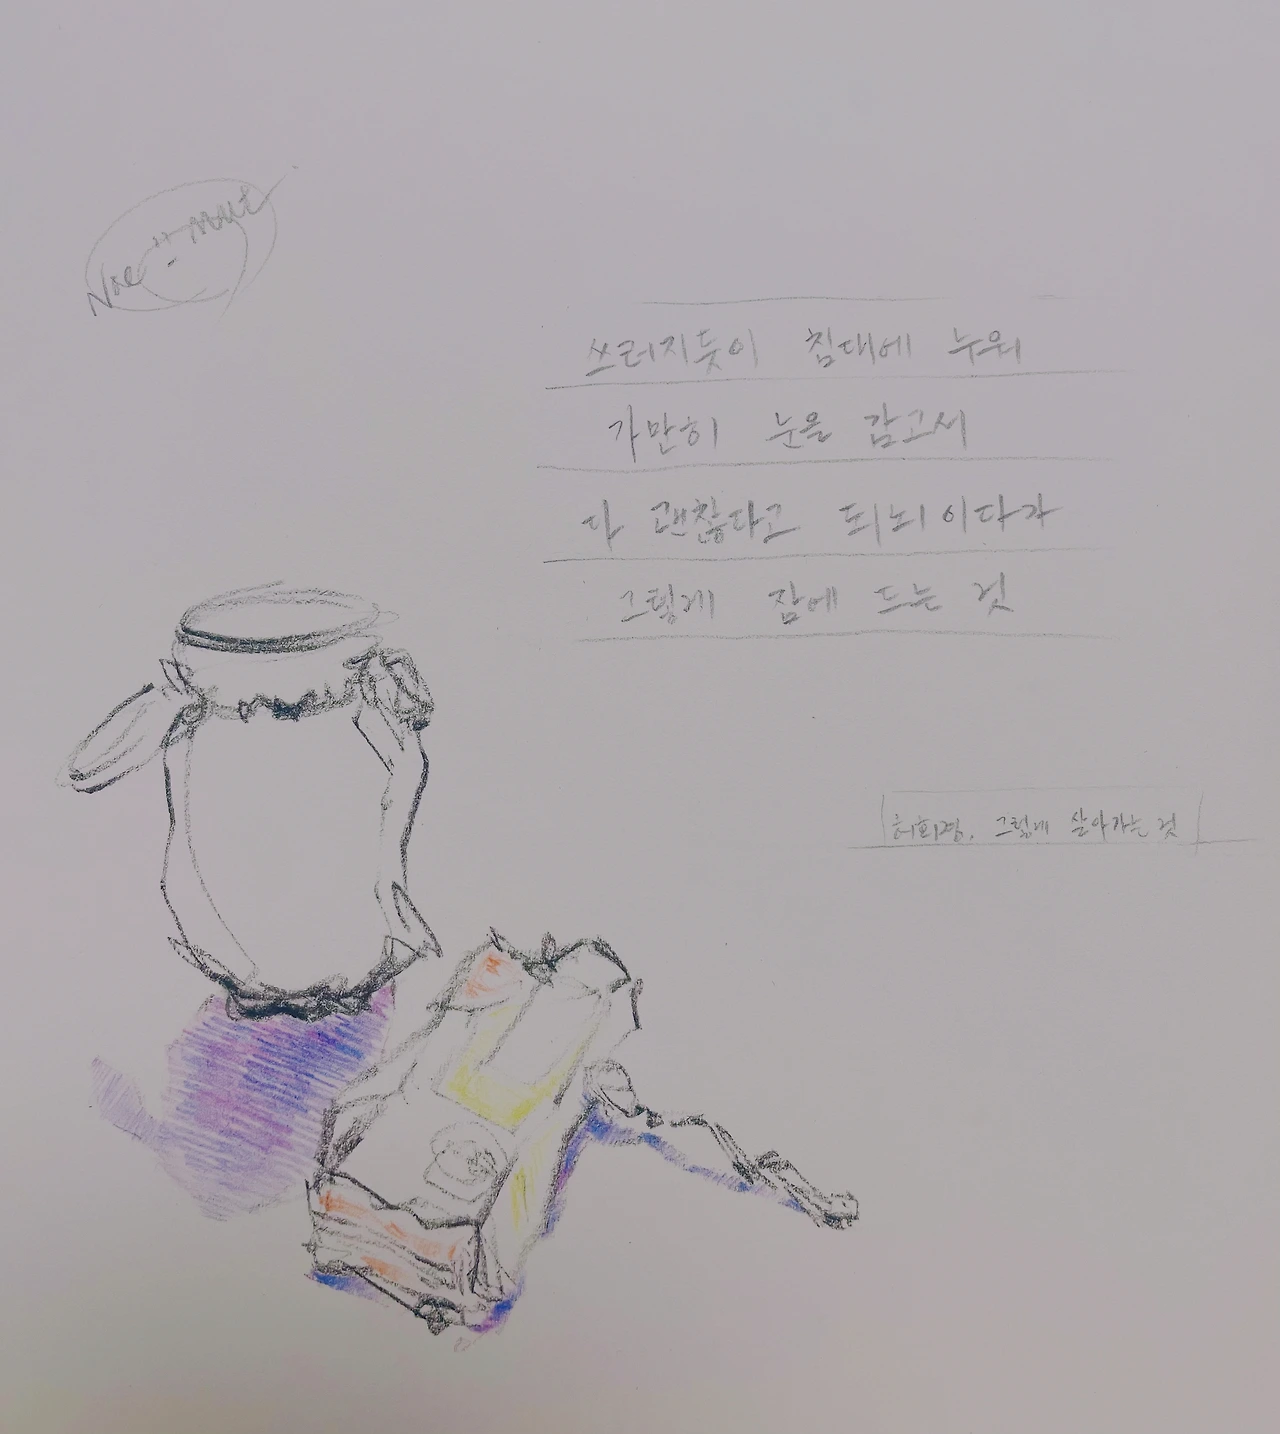 쓰러지듯이 침대에 누워
가만히 눈을 감고서
다 괜찮다고 되뇌이다가
그렇게 잠에 드는 것
허회경, 그렇게 살아가는 것